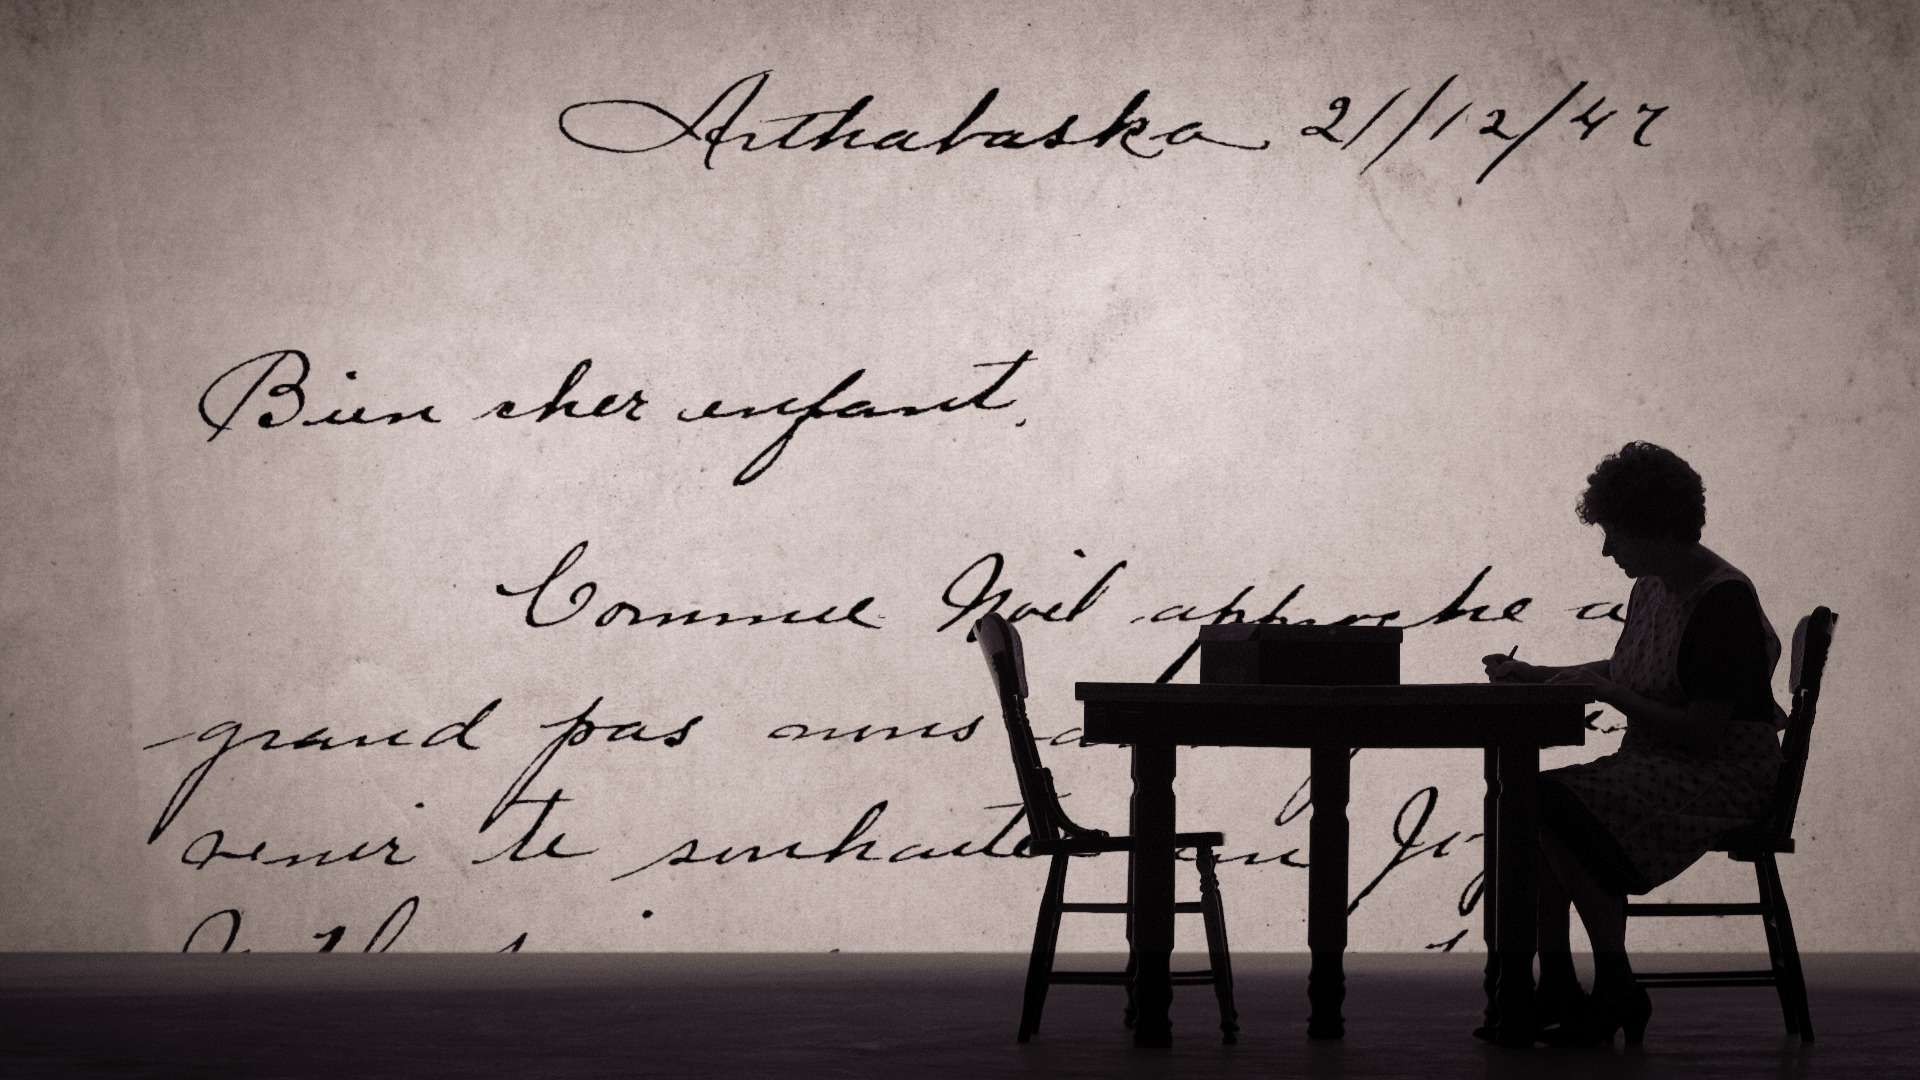 Arthabaska 21/12/47
Bien cher enfant,
Comme Noël approche a
grand pas nous
venir te souhaiter un